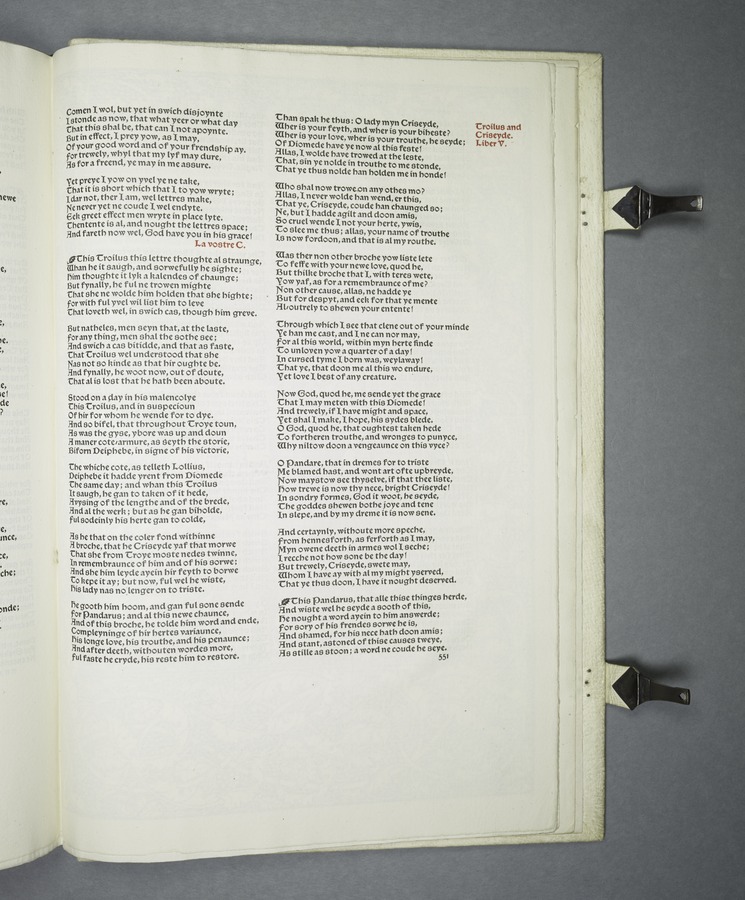 newe
e,
e,
e.
e,
e!
de
?
re,
e,
unce,
ce,
che;
onde;
Comen I wol, but yet in swich disjoynte
I stonde as now, that what yeer or what day
That this shal be, that can I not apoynte.
But in effect, I prey yow, as I may,
Of your good word and of your frendship ay.
For trewely, whyl that my lyf may dure,
As for a freend, ye may in me assure.
Yet preye I yow on yvel ye ne take,
That it is short which that I to yow wryte;
I dar not, ther I am, wel lettres make,
Ne never yet ne coude I wel endyte.
Eek greet effect men wryte in place lyte.
Thentente is al, and nought the lettres space;
And fareth now wel, God have you in his grace!
La vostre C.
This Troilus this lettre thoughte al straunge,
Whan he it saugh, and sorwefully he sighte;
Him thoughte it lyk a kalendes of chaunge;
But fynally, he ful ne trowen mighte
That she ne wolde him holden that she highte;
For with ful yvel wil list him to leve
That loveth wel, in swich cas, though him greve.
But natheles, men seyn that, at the laste,
For any thing, men shal the sothe see;
And swich a cas bitidde, and that as faste,
That Troilus wel understood that she
Nas not so kinde as that hir oughte be.
And fynally, he woot now, out of doute,
That al is lost that he hath been aboute.
Stood on a day in his malencolye
This Troilus, and in suspecioun
Of hir for whom he wende for to dye.
And so bifel, that throughout Troye toun,
As was the gyse, ybore was up and doun
A maner cote-armure, as seyth the storie,
Biforn Deiphebe, in signe of his victorie,
The whiche cote, as telleth Lollius,
Deiphebe it hadde yrent from Diomede
The same day; and whan this Troilus
It saugh, he gan to taken of it hede,
Avysing of the lengthe and of the brede,
And al the werk; but as he gan biholde,
Ful sodeinly his herte gan to colde,
As he that on the coler fond withinne
A broche, that he Criseyde yaf that morwe
That she from Troye moste nedes twinne,
In remembraunce of him and of his sorwe;
And she him leyde ayein hir feyth to borwe
To kepe it ay; but now, ful wel he wiste,
His lady nas no lenger on to triste.
He gooth him hoom, and gan ful sone sende
For Pandarus; and al this newe chaunce,
And of this broche, he tolde him word and ende,
Compleyninge of hir hertes variaunce,
His longe love, his trouthe, and his penaunce;
And after deeth, withouten wordes more,
Ful faste he cryde, his reste him to restore.
Than spak he thus: O lady myn Criseyde,
Wher is your feyth, and wher is your biheste?
Wher is your love, wher is your trouthe, he seyde;
Of Diomede have ye now al this feste!
Allas, I wolde have trowed at the leste,
That, sin ye nolde in trouthe to me stonde,
That ye thus nolde han holden me in honde!
Who shal now trowe on any othes mo?
Allas, I never wolde han wend, er this,
That ye, Criseyde, coude han chaunged so;
Ne, but I hadde agilt and doon amis,
So cruel wende I not your herte, ywis,
To slee me thus; allas, your name of trouthe
Is now fordoon, and that is al my routhe.
Was ther non other broche yow liste lete
To feffe with your newe love, quod he,
But thilke broche that I, with teres wete,
Yow yaf, as for a remembraunce of me?
Non other cause, allas, ne hadde ye
But for despyt, and eek for that ye mente
Al outrely to shewen your entente!
Through which I see that clene out of your minde
Ye han me cast, and I ne can nor may,
For al this world, within myn herte finde
To unloven yow a quarter of a day!
In cursed tyme I born was, weylaway!
That ye, that doon me al this wo endure,
Yet love I best of any creature.
Now God, quod he, me sende yet the grace
That I may meten with this Diomede!
And trewely, if I have might and space,
Yet shal I make, I hope, his sydes blede.
O God, quod he, that oughtest taken hede
To fortheren trouthe, and wronges to punyce,
Why niltow doon a vengeaunce on this vyce?
O Pandare, that in dremes for to triste
Me blamed hast, and wont art ofte upbreyde,
Now maystow see thyselve, if that thee liste,
How trewe is now thy nece, bright Criseyde!
In sondry formes, God it woot, he seyde,
The goddes shewen bothe joye and tene
In slepe, and by my dreme it is now sene.
And certaynly, withoute more speche,
From hennesforth, as ferforth as I may,
Myn owene deeth in armes wol I seche;
I recche not how sone be the day!
But trewely, Criseyde, swete may,
Whom I have ay with al my might yserved,
That ye thus doon, I have it nought deserved.
This Pandarus, that alle thise thinges herde,
And wiste wel he seyde a sooth of this,
He nought a word ayein to him answerde;
For sory of his frendes sorwe he is,
And shamed, for his nece hath doon amis;
And stant, astoned of thise causes tweye,
As stille as stoon; a word ne coude he seye.
551
Troilus and
Criseyde.
Liber V.